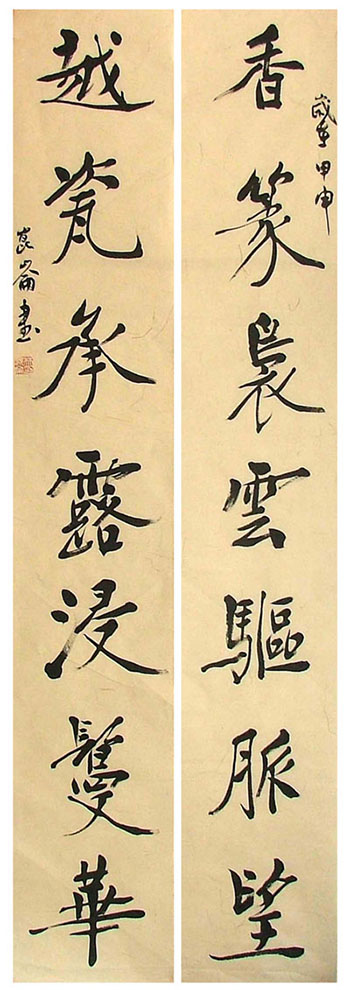 歲在甲申
香篆裊雲驅脈望
越瓷承露浸鬘華
崑崙書